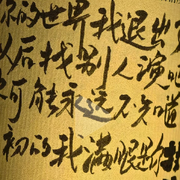 的世界我退出了
以后找别人演
可能永远不知道
初的我满眼